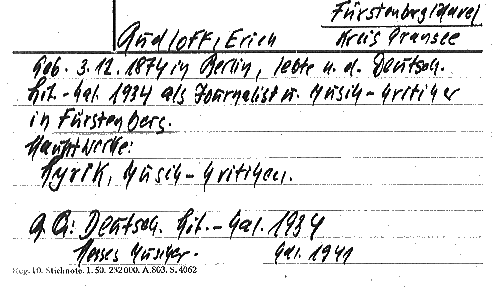 Fürstenberg/Havel
Gudloff, Erich Kreis Gransee
Geb. 3.12.1874 in Berlin, lebte n. d. Deutsch.
Lit.-Kal. 1934 als Journalist u. Musik-Kritiker
in Fürstenberg.
Hauptwerke:
Lyrik, Musik-Kritiken.
Qu: Deutsch. Lit.-Kal. 1934
Hesses Musiker- Kal. 1941
Reg. 10. Stichnote. 1. 50. 232000. A.803. S.4062